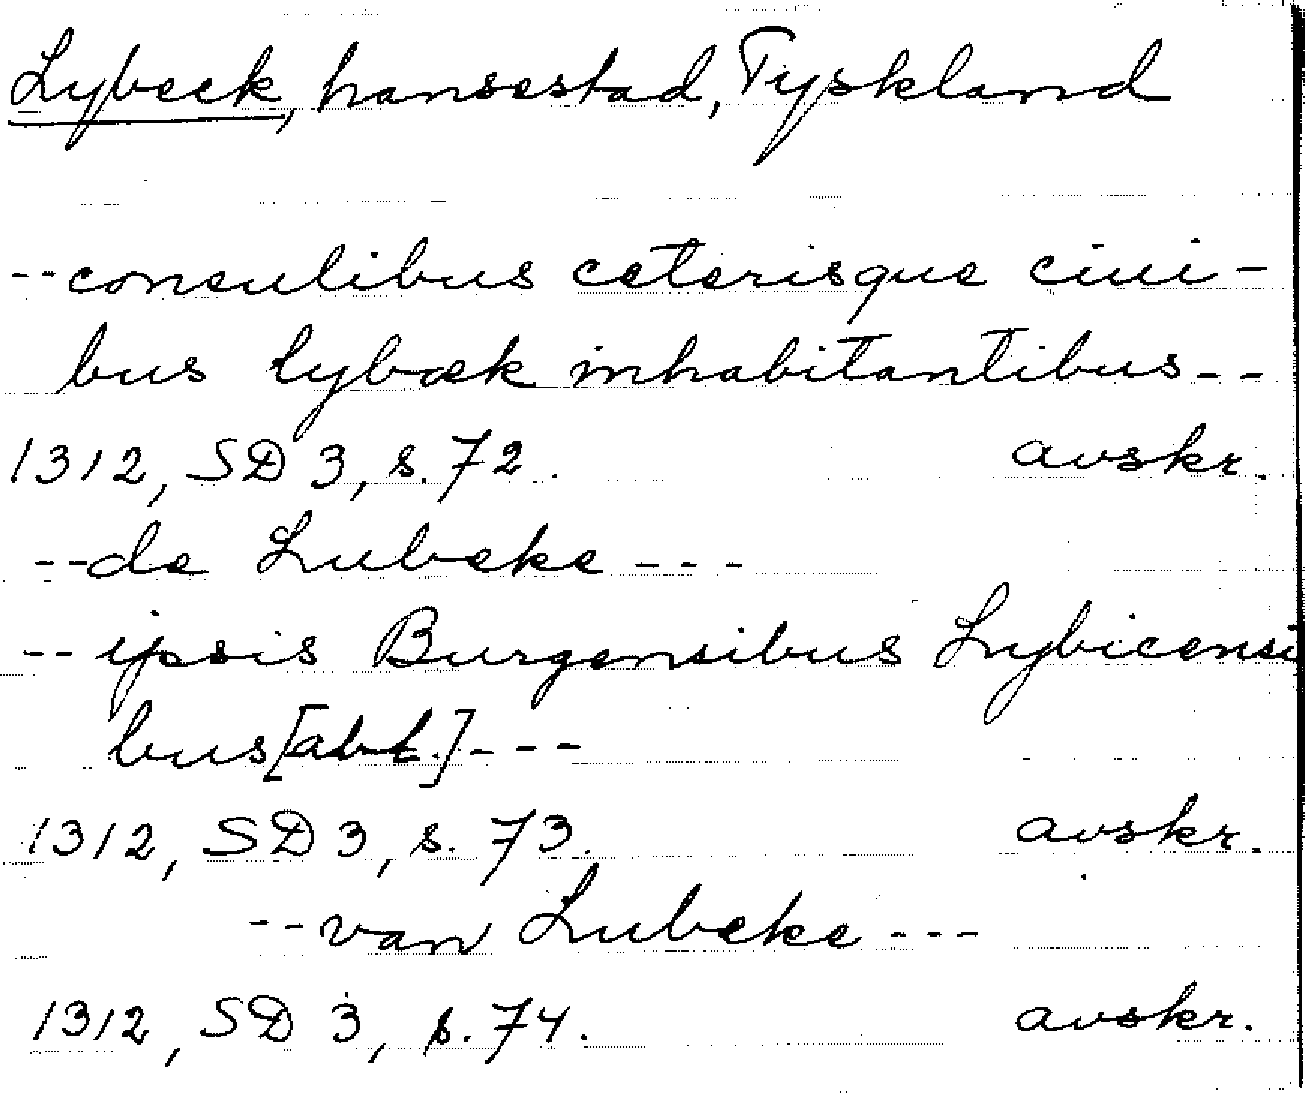 Lybeck, hansestad, Tyskland
--consulibus ceterisque ciui-
bus lybæk inhabitantibus--
1312, SD 3, s. 72. avskr.
--de Lubeke---
--ipsis Burgensibus Lybicensi
bus [abl.]---
1312, SD 3, s. 73. avskr.
--van Lubeke---
1312, SD 3, s. 74. avskr.